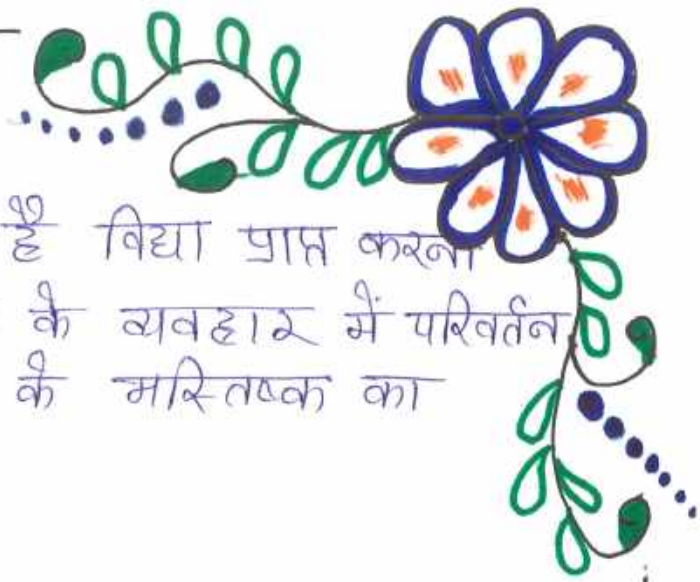 है विद्या प्राप्त करना
के व्यवहार में परिवर्तन
के मस्तिष्क का